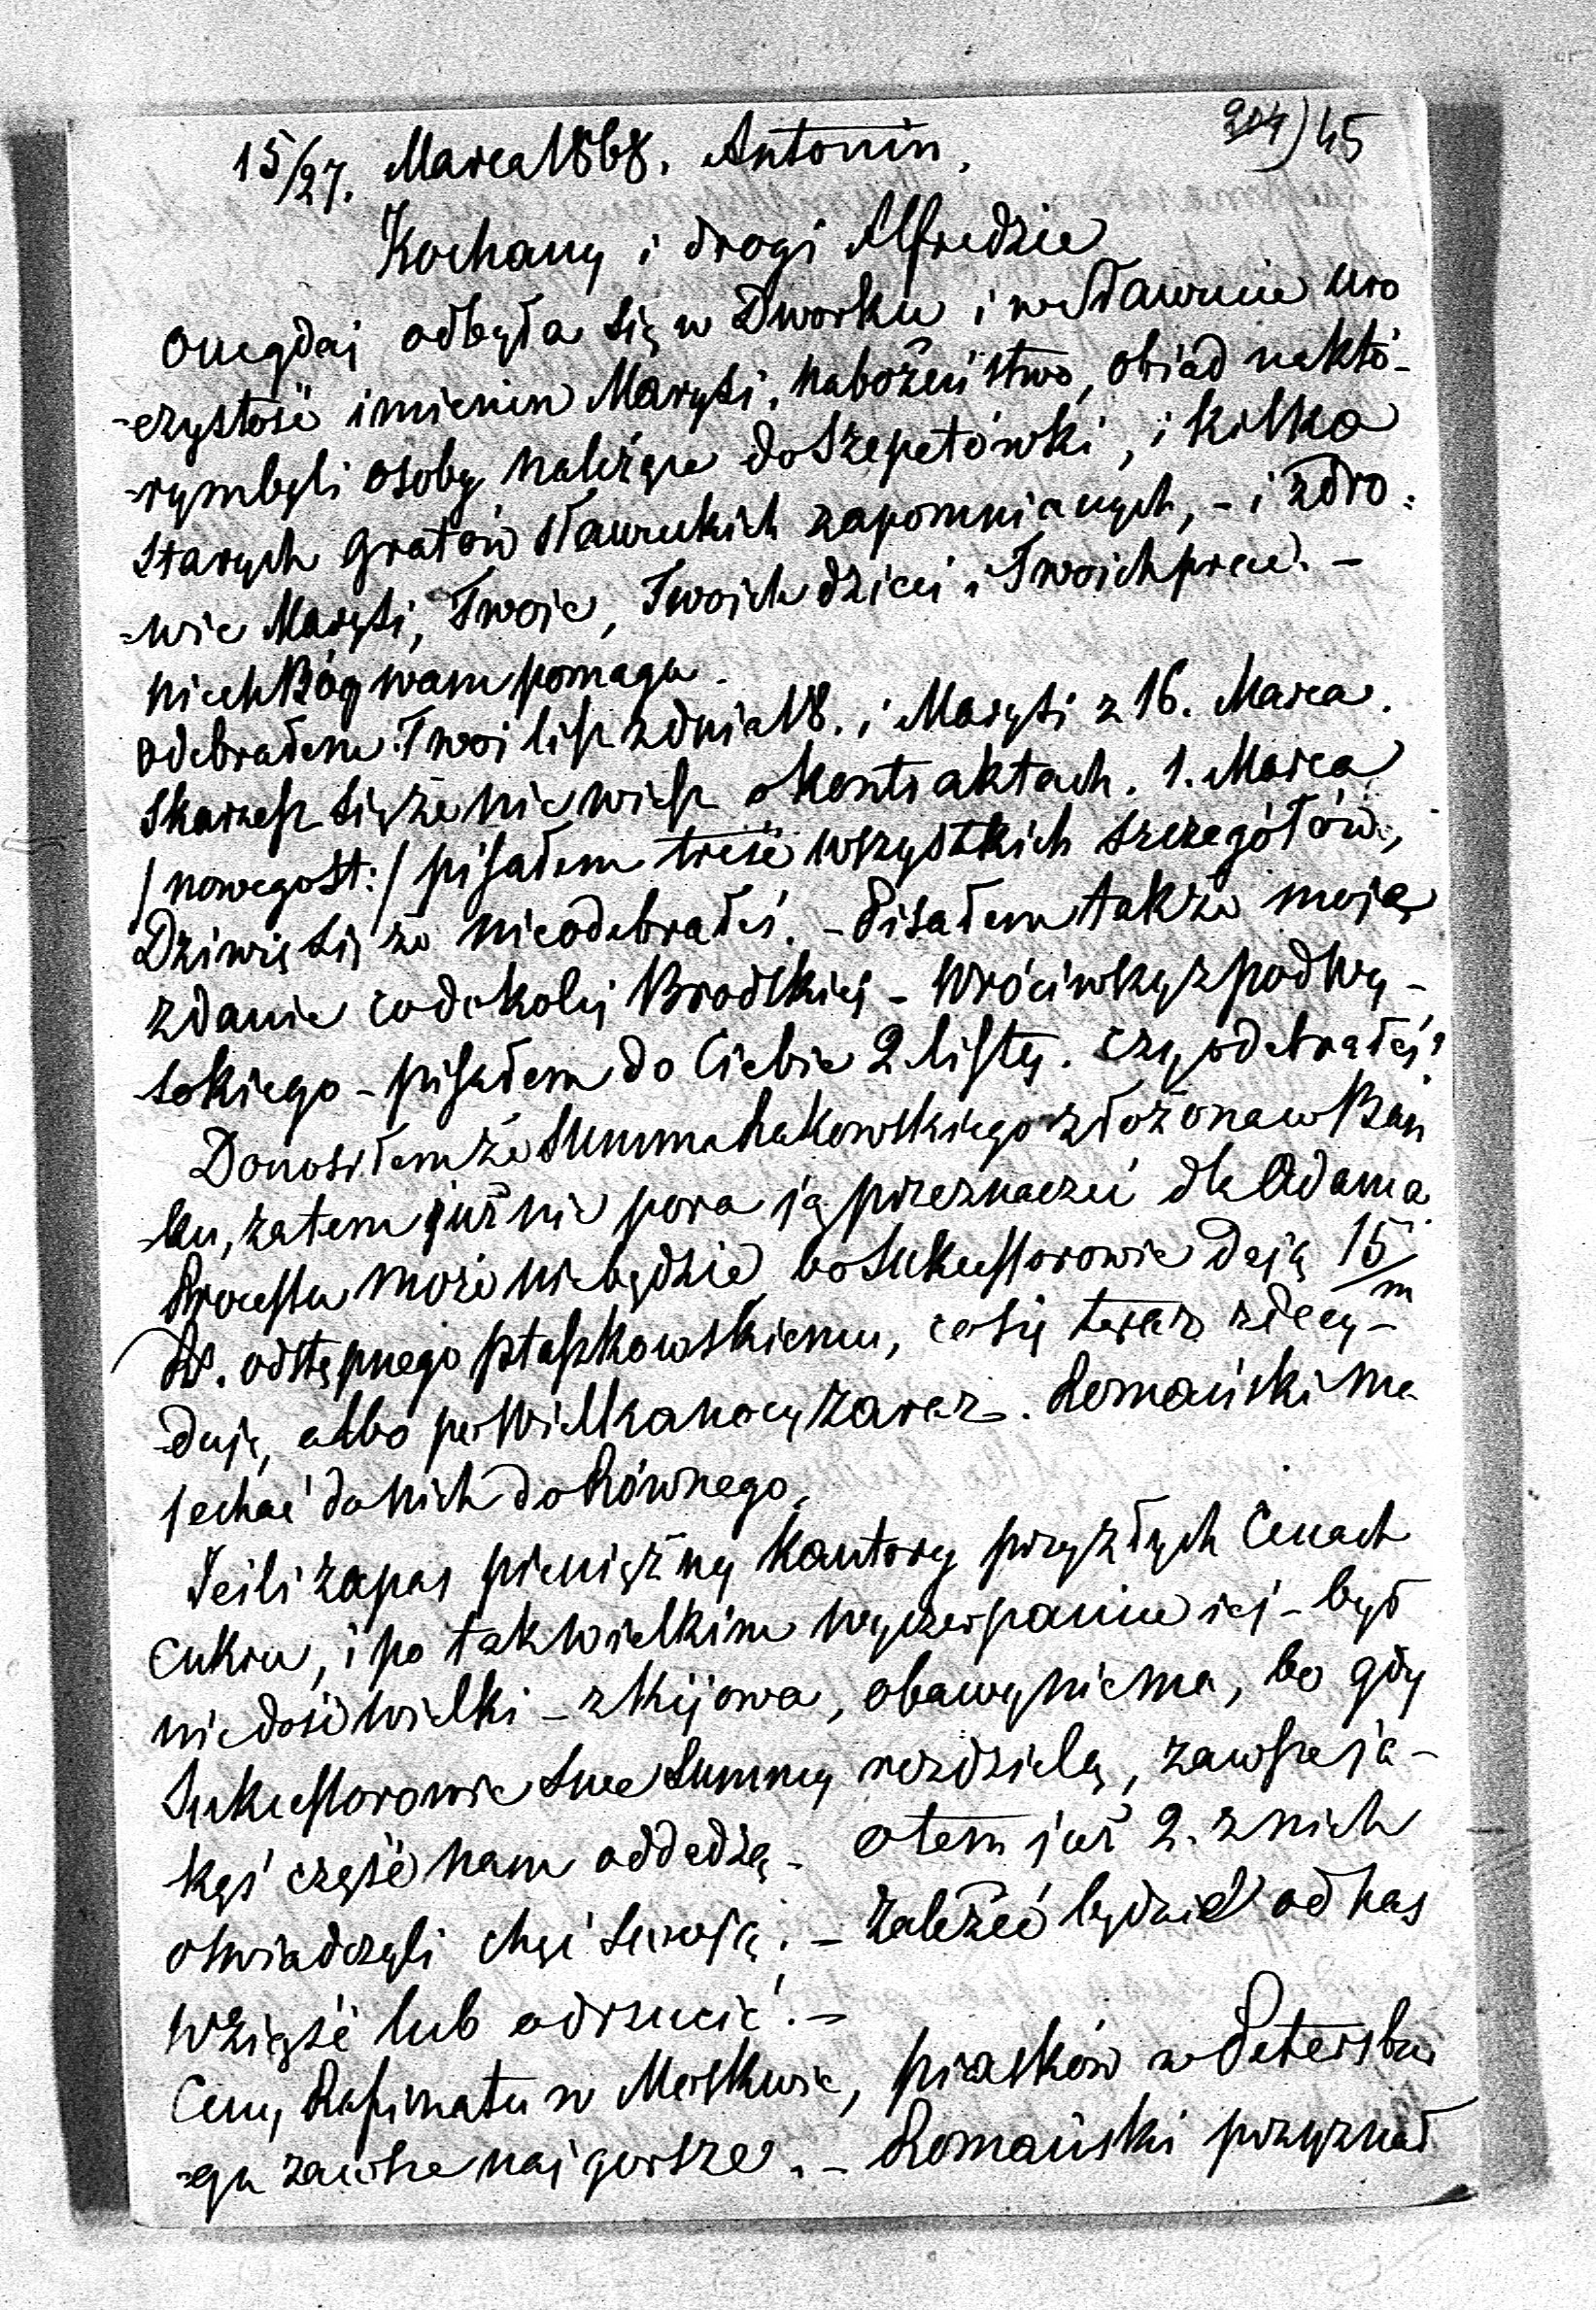 204) 45
15/27. Marca 1868. Antonin.
Kochany i drogi Alfredzie
Onegdaj odbyła się w Dworku i w Sławucie uro
-czystość imienin Marysi, nabożeństwo, obiad na któ-
-rym byli osoby należące do Szepetówki, i kilka
starych gratów sławuckich zapomnianych, - i zdro=
=wie Marysi, Twoje, Twoich dzieci i Twoich prac. -
niech Bóg wam pomaga.
Odebrałem Twoi list z dnia 18. i Marysi z 16. Marca.
Skarzesz się że nie wiesz o kontraktach. 1. Marca
/nowego st:/ pisałem treść wszystkich szczegółów,
Dziwię się że nieodebrałeś. - Pisałem także moje
zdanie co do kolei Brodzkiej - Wróciwszy z pod Wy-
sokiego - pisałem do Ciebie 2 listy. Czy odebrałeś?
Donosiłem że Summa Rakowskiego złożona w Ban
-ku, zatem już nie pora ją przeznaczać dla Adama.
Procesu może nie będzie bo Sukcessorowie dają 15/m
Rs. odstępnego Ptaszkowskiemu, co się teraz zdecy-
-duje, albo po Wielkanocy zaraz. Romański ma
jechać do nich do Równego.
Jeili zapas pieniężny Kantory przy złych Cenach
Cukru, i po tak wielkim wyczerpaniu jej - był
nie dość wielki - z Kijowa, obawy nie ma, bo gdy
Sukcessorowie swe Summy rozdzielą, zawsze ja-
kąś część nam oddadzą - o tem już 2. z nich
oświadczyli chęć swoją. - Zależeć będzie od nas
wziąść lub odrzucić. -
Ceny Rafinatu w Moskwie, piasków w Petersbur
-gu zawsze najgorsze. - Romański przyznał